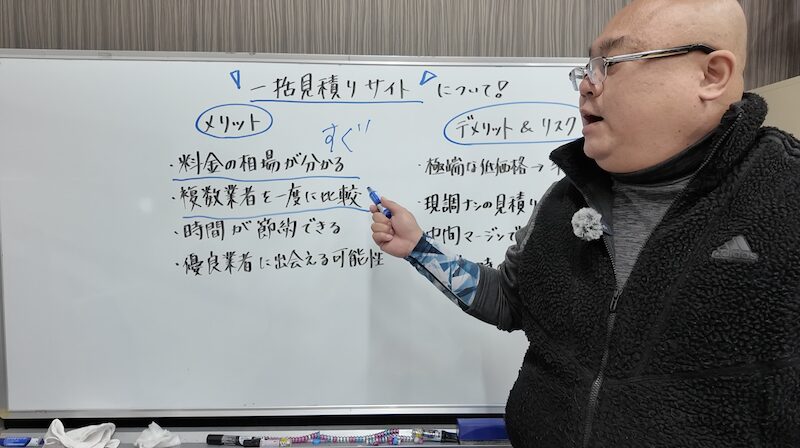 「一括見積りサイト」について!
メリット
すぐ
・料金の相場が分かる
・複数業者を一度に比較
・時間が節約できる
・優良業者に出会える可能性
デメリット & リスク
・極端な低価格→
・現調ナシの見積り
・中間マージンで
adidas